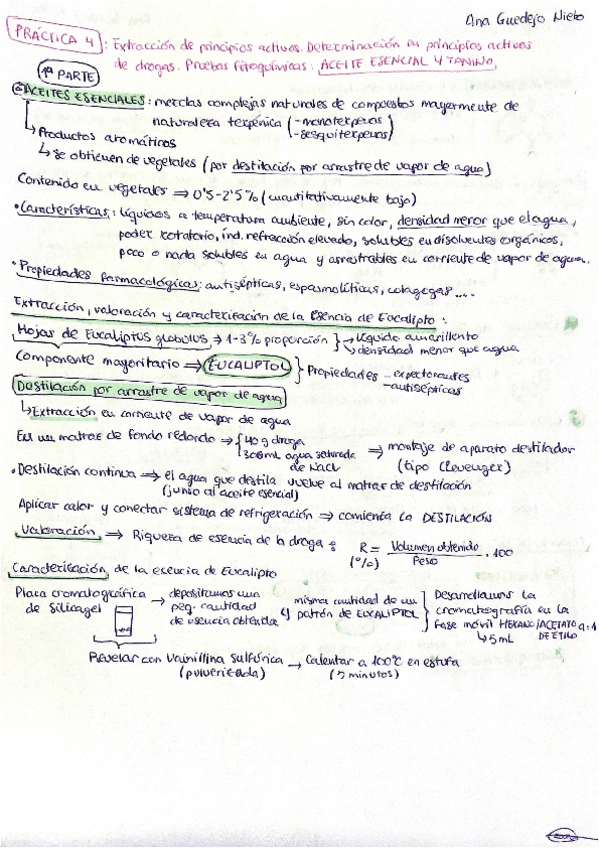 Ana Guedejo Nieto
PRÁCTICA 4: Extracción de principios activos. Determinación en principios activos
de drogas. Pruebas fitoquímicas: ACEITE ESENCIAL Y TANINO.
1ª PARTE
ACEITES ESENCIALES: mezclas complejas naturales de compuestos mayormente de
naturaleza terpénica (-monoterpenos
-sesquiterpenos)
↳ Productos aromáticos
↳ se obtienen de vegetales (por destilación por arrastre de vapor de agua)
Contenido en vegetales ⇒ 0'5-2'5% (cuantitativamente bajo)
• Características: líquidos a temperatura ambiente, sin color, densidad menor que el agua,
poder rotatorio, ind. refracción elevado, solubles en disolventes orgánicos,
poco o nada solubles en agua y arrastrables en corriente de vapor de agua.
• Propiedades farmacológicas: antisépticas, espasmolíticas, colagogas ....
Extracción, valoración y caracterización de la Esencia de Eucalipto:
Hojas de Eucaliptus globulus → 1-3% proporción } → líquido amarillento
→ densidad menor que agua
Componente mayoritario ⇒ EUCALIPTOL } Propiedades - expectorantes
- antisépticas
Destilación por arrastre de vapor de agua
↳ Extracción en corriente de vapor de agua
En un matraz de fondo redondo ⇒ { 40 g droga
300 mL agua saturada
de NaCl
⇒ montaje de aparato destilador
(tipo Clevenger)
• Destilación continua ⇒ el agua que destila vuelve al matraz de destilación
(junto al aceite esencial)
Aplicar calor y conectar sistema de refrigeración ⇒ comienza la DESTILACIÓN
Valoración ⇒ Riqueza de esencia de la droga: R = Volumen obtenido / Peso · 100
(%)
Caracterización de la esencia de Eucalipto
Placa cromatográfica
de Silicagel
→ depositamos una
peq. cantidad
de esencia obtenida
misma cantidad de un
patrón de EUCALIPTOL
} Desarrollamos la
cromatografía en la
fase móvil HEXANO/ACETATO 9:1
DE ETILO
↳ 5mL
Revelar con Vainillina Sulfúrica → Calentar a 100°C en estufa
(pulverizada) (5 minutos)